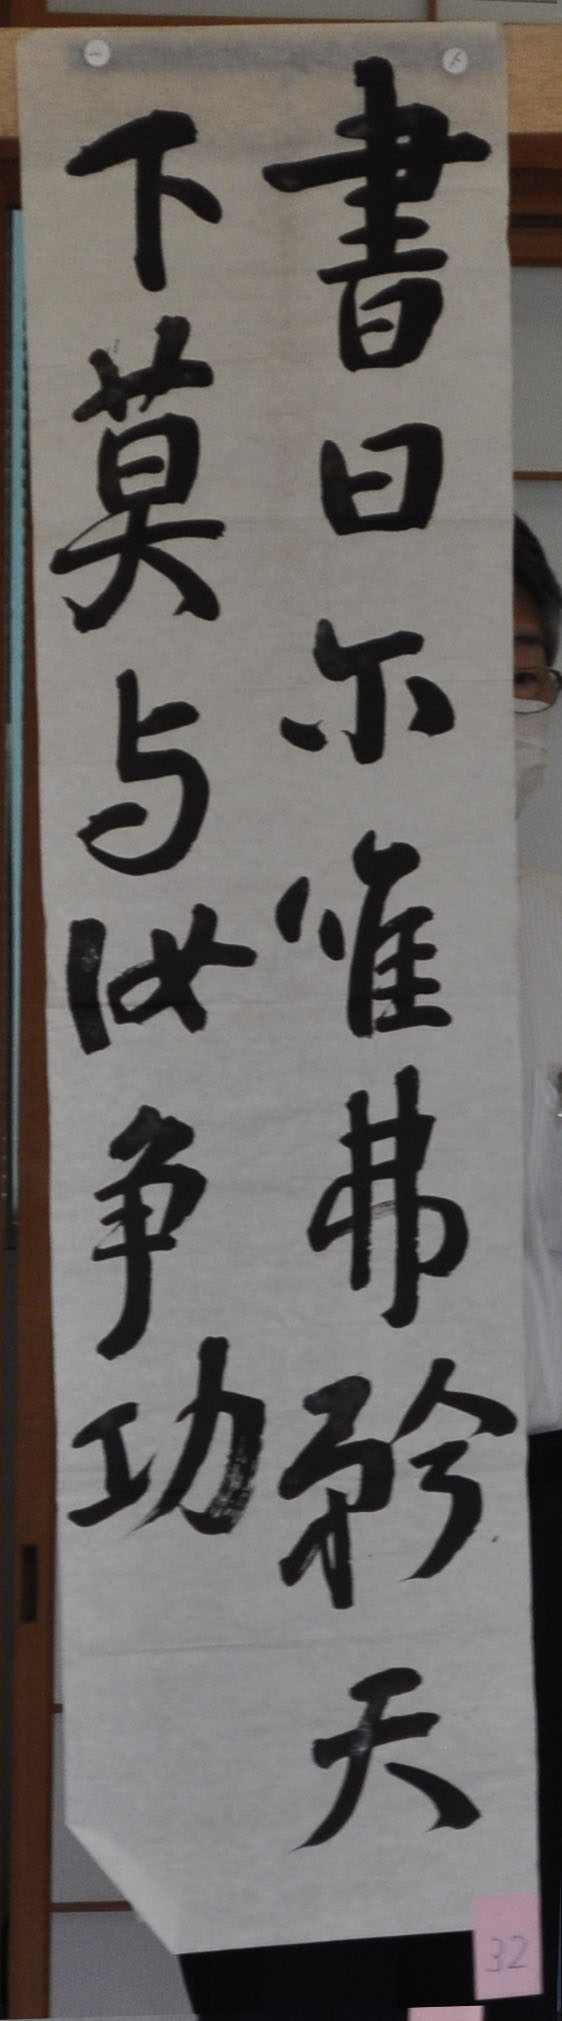 書曰尓唯弗矜天
下莫与汝争功
32